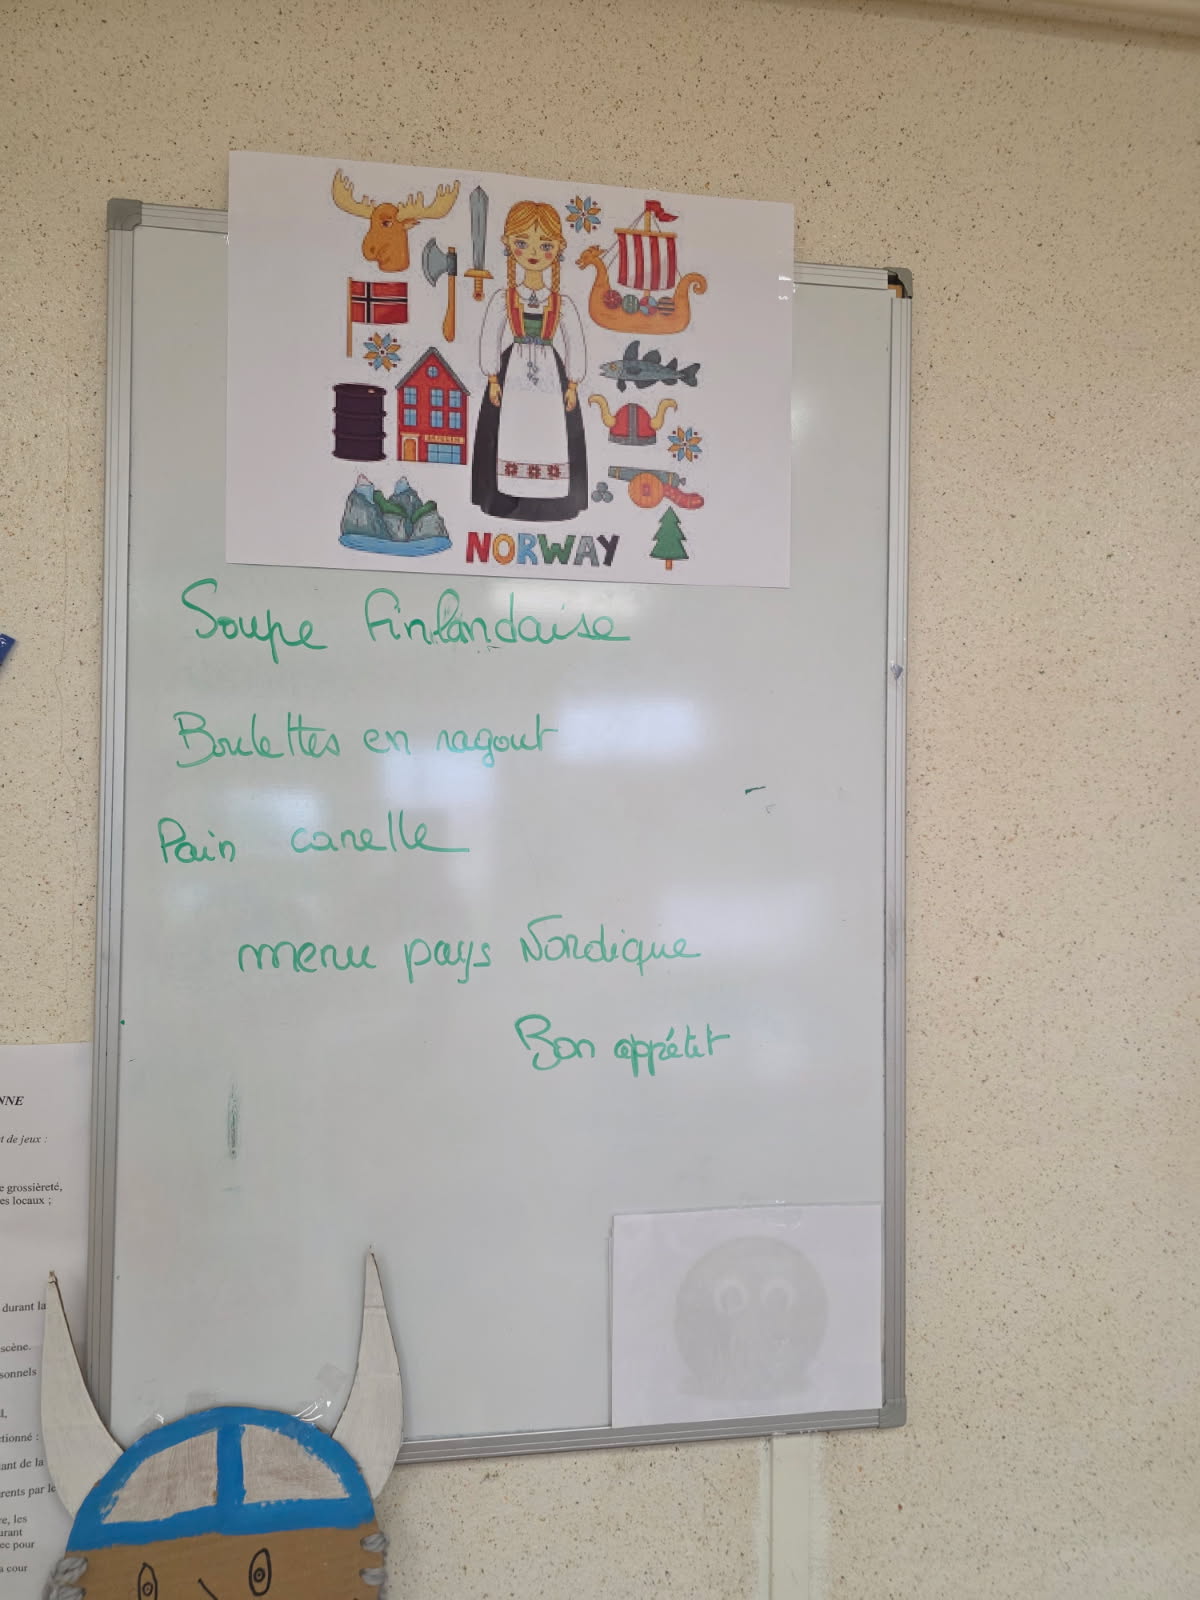 NORWAY
Soupe Finlandaise
Boulettes en ragout
Pain canelle
menu pays Nordique
Bon appétit
NNE
t de jeux :
e grossièreté,
es locaux ;
durant la
scène.
sonnels
l,
ctionné :
ant de la
rents par le
re, les
urant
ec pour
a cour